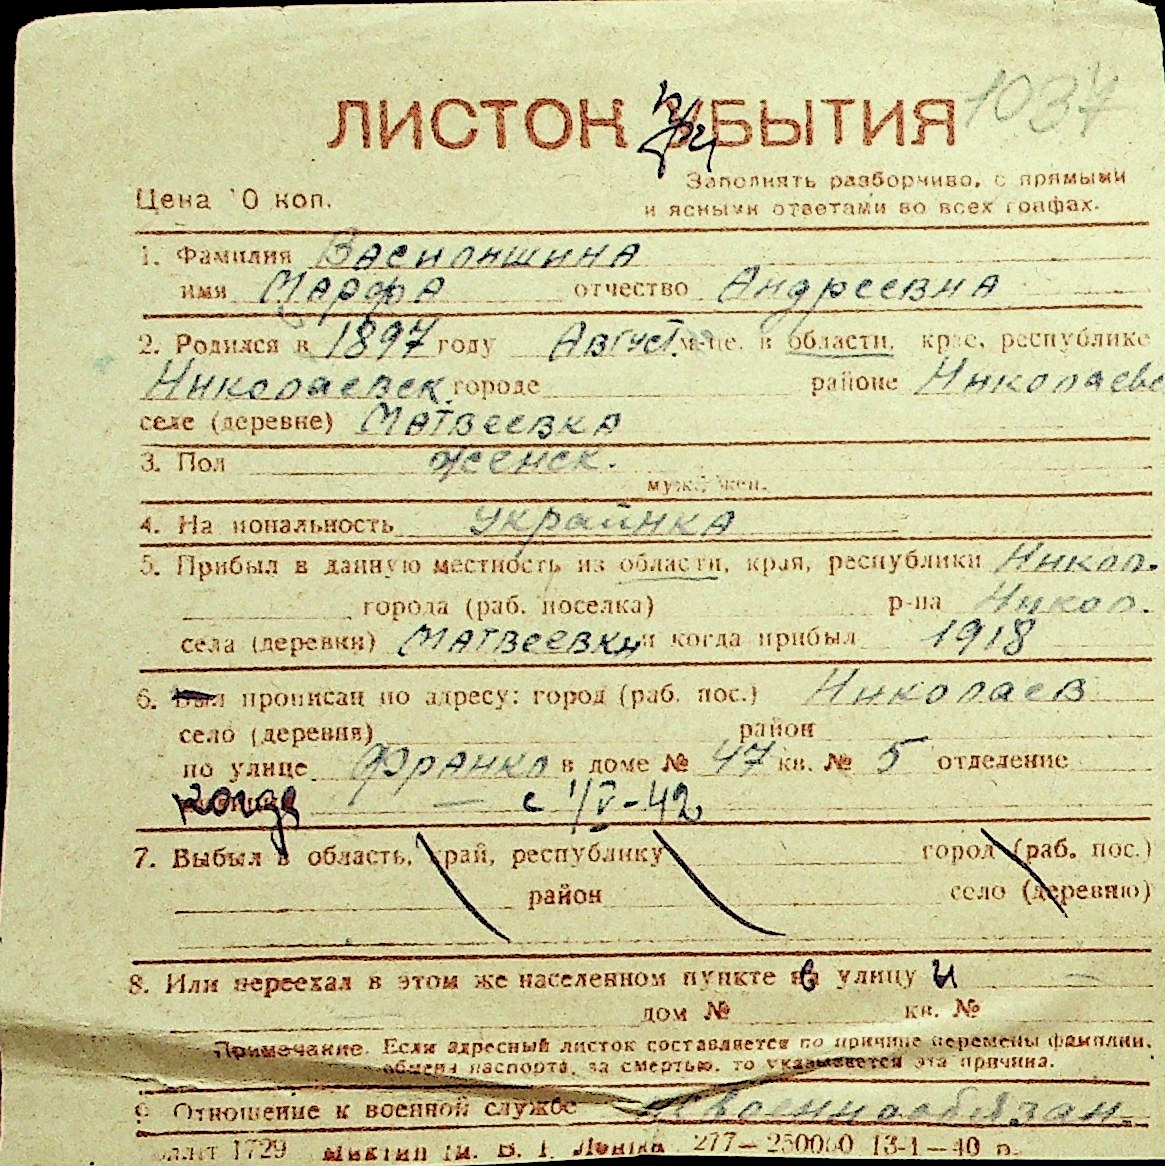 1037
ЛИСТОК при БЫТИЯ
Цена 10 коп.
Заполнять разборчиво, с прямыми
и ясными ответами во всех графах.
1. Фамилия Васионшина
имя Марфа отчество Андреевна
2. Родился в 1897 году Август м-це, в области, крае, республике
Николаевск. городе районе Николаевс
селе (деревне) Матвеевка
3. Пол женск.
муж., жен.
4. Национальность украинка
5. Прибыл в данную местность из области, края, республики Никол.
города (раб. поселка) р-на Никол.
села (деревни) Матвеевки и когда прибыл 1918
6. Был прописан по адресу: город (раб. пос.) Николаев
село (деревня) район
по улице Франко в доме № 47 кв. № 5 отделение
когда — с 1/IV-42
7. Выбыл в область, край, республику город (раб. пос.)
район село (деревню)
8. Или переехал в этом же населенном пункте на улицу и —
дом № кв. №
Примечание. Если адресный листок составляется по причине перемены фамилии,
обмена паспорта, за смертью, то указывается эта причина.
9 Отношение к военной службе невоеннообязан.
1729 В. І. Леніна 277—250000 13-1—40 р.